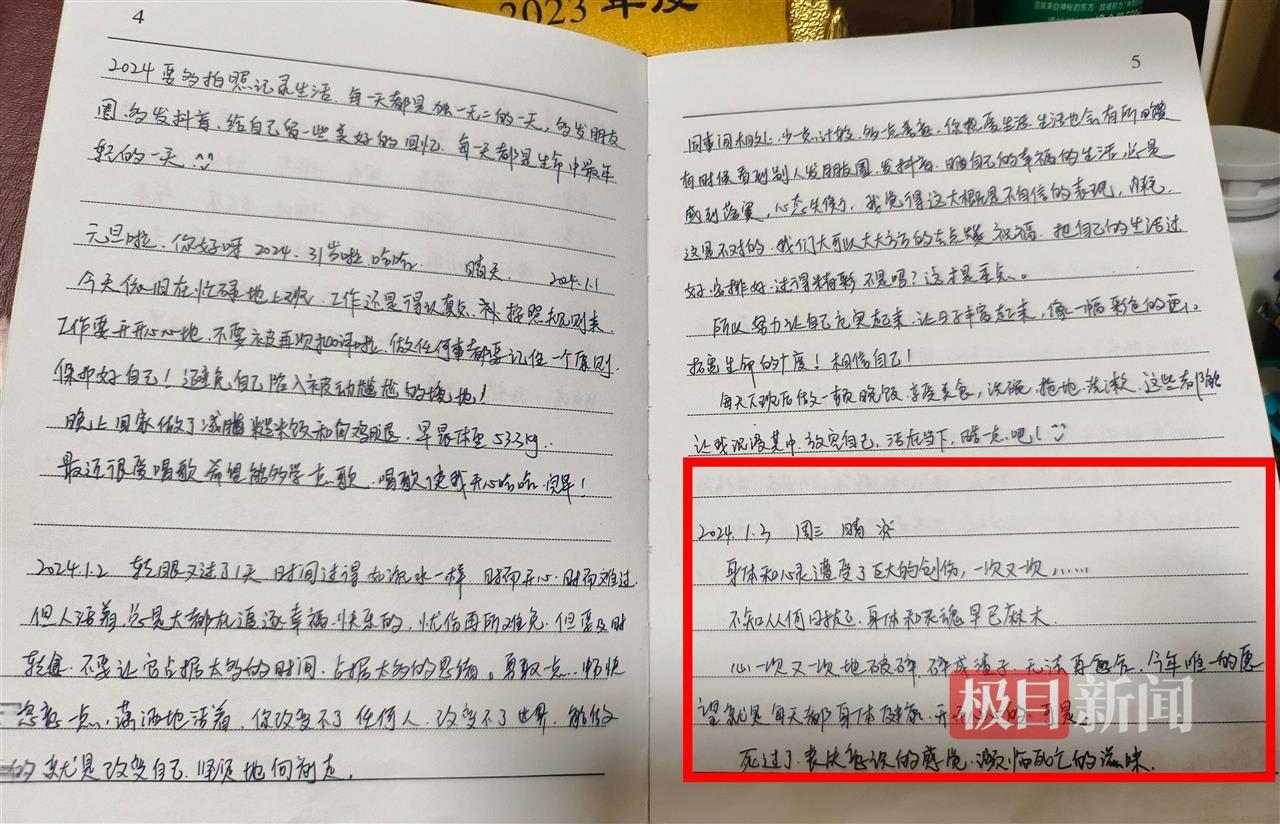 2023年度
4
2024要多拍照记录生活.每一天都是独一无二的一天,多发朋友
圈.多发抖音.给自己留一些美好的回忆.每一天都是生命中最年
轻的一天.
元旦啦.你好呀2024.31岁啦.哈哈. 晴天 2024.1.1
今天依旧在忙碌地上班.工作还是得认真点.按照规则来.
工作要开开心心地.不要被再次批评啦.做任何事都要记住一个原则.
保护好自己!避免自己陷入被动尴尬的境地!
晚上回家做了减脂糙米饭和鸡腿.早晨体重53.3kg.
最近很爱唱歌.希望能多学点歌.唱歌使我开心哈哈.
2024.1.2 转眼又过了1天 时间过得如流水一样.时而开心.时而难过.
但人活着.总是大都在追逐幸福.快乐的.忧伤再所难免.但要及时
转换.不要让它占据太多的时间.占据太多的思绪。勇敢一点.畅快
恣意一点.潇洒地活着.你改变不了任何人.改变不了世界.能做
的就是改变自己.坚定地向前走.
5
同事间相处.少一点计较.多一点善意.你热爱生活.生活也会有所回馈
有时候看到别人发朋友圈.发抖音.晒自己的幸福的生活.总是
感到落寞,心态失衡了,我觉得这大概是不自信的表现,内耗.
这是不对的.我们大可以大大方方的去点赞.祝福.把自己的生活过
好.安排好.过得精彩不是吗?这才是重点。
所以努力让自己充实起来.让日子丰富起来,像一幅彩色的画.
拓宽生命的广度!相信自己!
每天下班后做一顿晚饭.享受美食,洗碗.拖地.洗漱.这些都能
让我沉浸其中.放空自己.活在当下.酷一点吧!
2024.1.3 周三 晴
身体和心灵遭受了巨大的创伤,一次又一次......
不知从何时起.身体和灵魂早已麻木.
心一次又一次地破碎.碎成渣子.无法再愈合.今年唯一的愿
望就是每天都身体健康.开开心心的.可是.
死过了表决的感觉.濒临死亡的滋味.
极目新闻